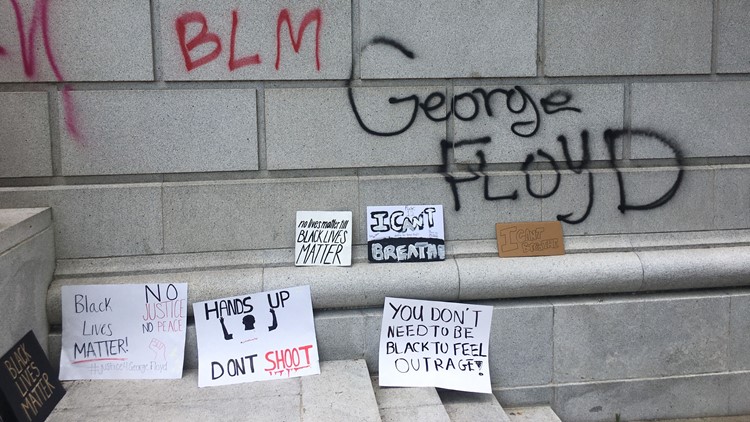 BLM
George
FLOYD
no lives matter till
BLACK LIVES
MATTER
I CANT
BREATHE
I CANT
BREATHE
Black
Lives
MATTER!
NO
JUSTICE
NO PEACE
#justice4George Floyd
HANDS UP
DONT SHOOT
YOU DON'T
NEED TO BE
BLACK TO FEEL
OUTRAGE!
BLACK
LIVES
MATTER